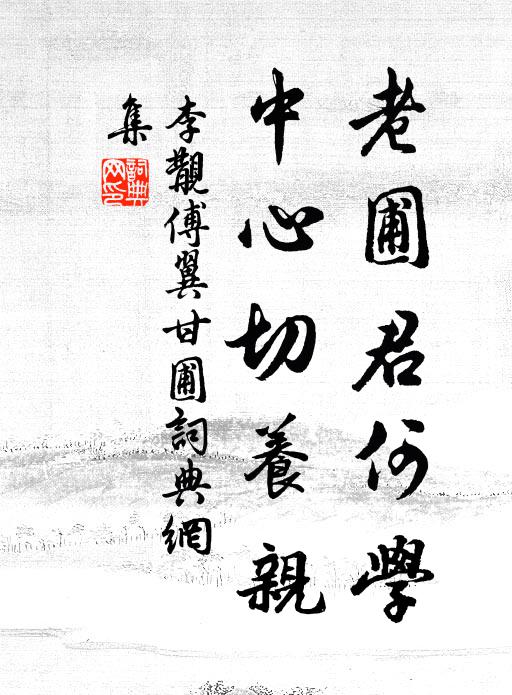 老圃君何學
中心切養親
李覯傅翼甘圃詞典網
集
詞典
网印